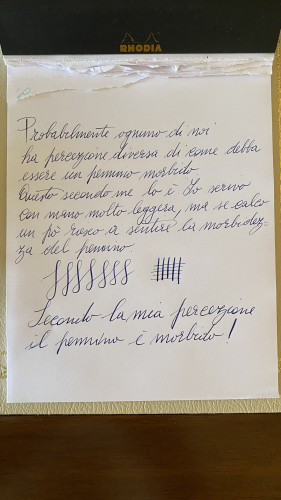 RHODIA
Probabilmente ognuno di noi
ha percezione diversa di come debba
essere un pennino morbido.
Questo secondo me lo è. Io scrivo
con mano molto leggera, ma se calco
un pò riesco a sentire la morbidez-
za del pennino.
Secondo la mia percezione
il pennino è morbido!